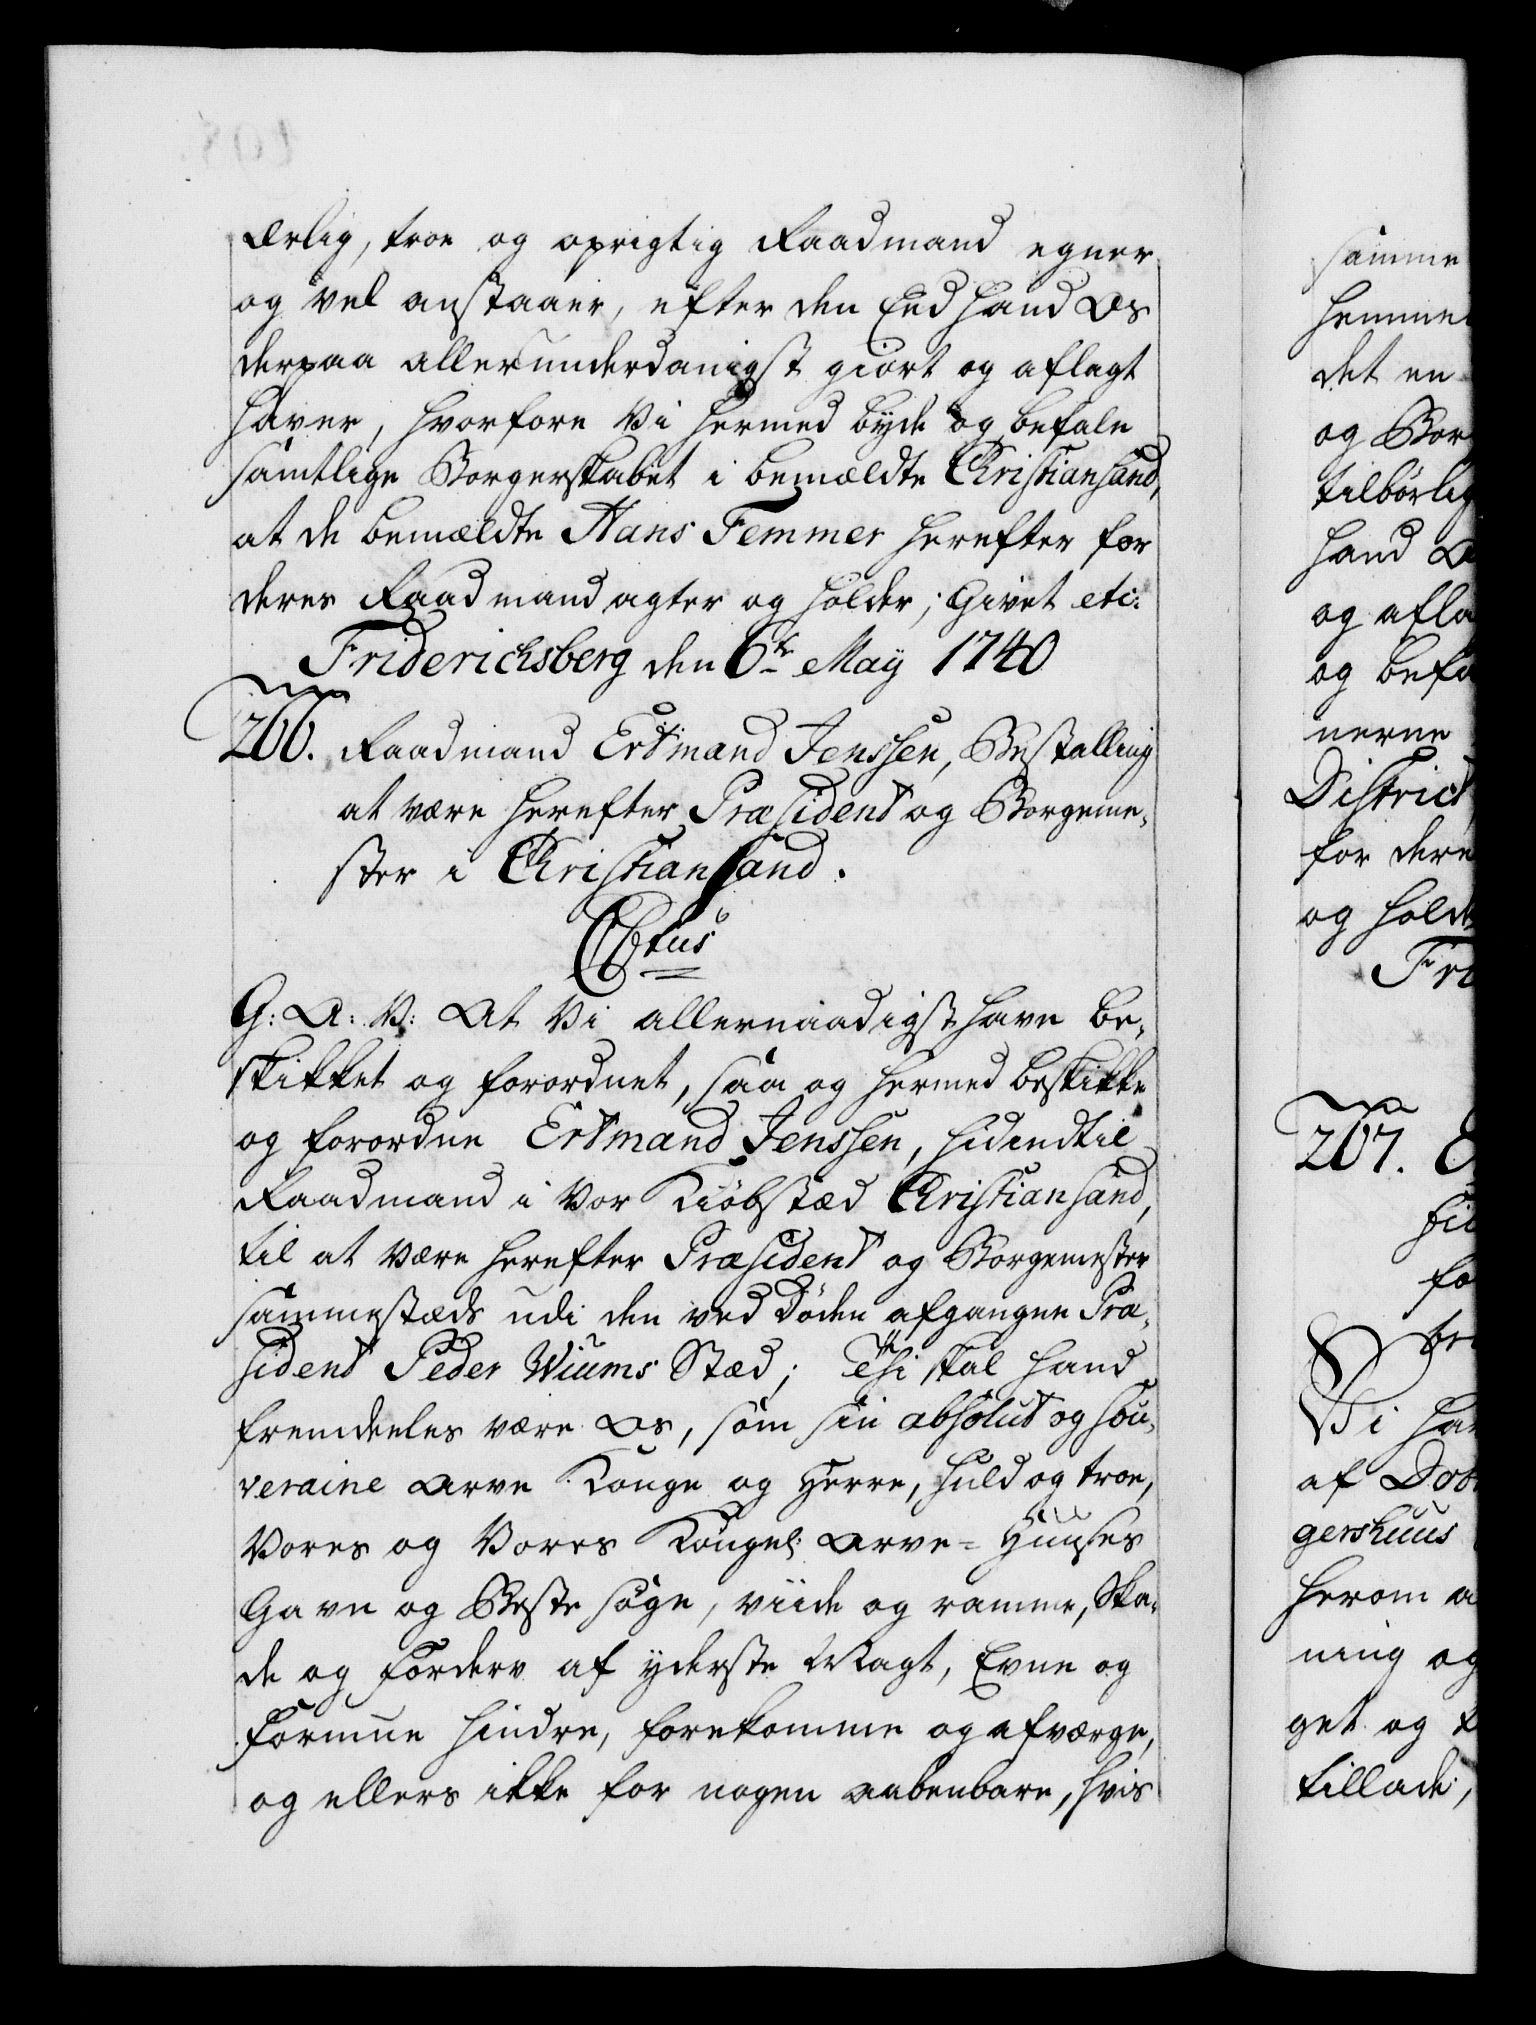 ærlig, troe og oprigtig Raadmand egner
og vel anstaaer, efter den Eed hand Os
derpaa allerunderdanigst giort og aflagt
haver, hvorfore Vi hermed byde og befale
samtlige Borgerskabet i bemældte Christiansand,
at de bemældte Hans Femmer herefter for
deres Raadmand agter og holder; Givet etc:
Friderichsberg den 6te May 1740
266. Raadmand Ertmand Jenssen, Bestalling
at være herefter Præsident og Borgeme-
ster i Christiansand.
C6tus
G: A: V: At Vi allernaadigst have be-
skikket og forordnet, saa og hermed beskikke
og forordne Ertmand Jenssen, hidindtil
Raadmand i Vor Kiøbstæd Christiansand,
til at være herefter Præsident og Borgemester
sammestæds udi den ved Døden afgangne Præ-
sident Peder Wiums Stæd; Thi skal hand
fremdeeles være Os, som sin absolut og sou-
veraine Arve Konge og Herre, huld og troe,
Vores og Vores Kongel: Arve-Huuses
Gavn og Beste søge, viide og ramme, Ska-
de og Forderv af yderste Magt, Evne og
Formue hindre, forekomme og afværge,
og ellers ikke for nogen aabenbare, hvis
samme
hemme
det en
og Bor
tilbørlig
hand
og afla
og befa
nerne
District,
for dere
og hold
Fri
267.
til
fo
Vi ha
af
gershuus
herom a
ning og
get og
tillade,